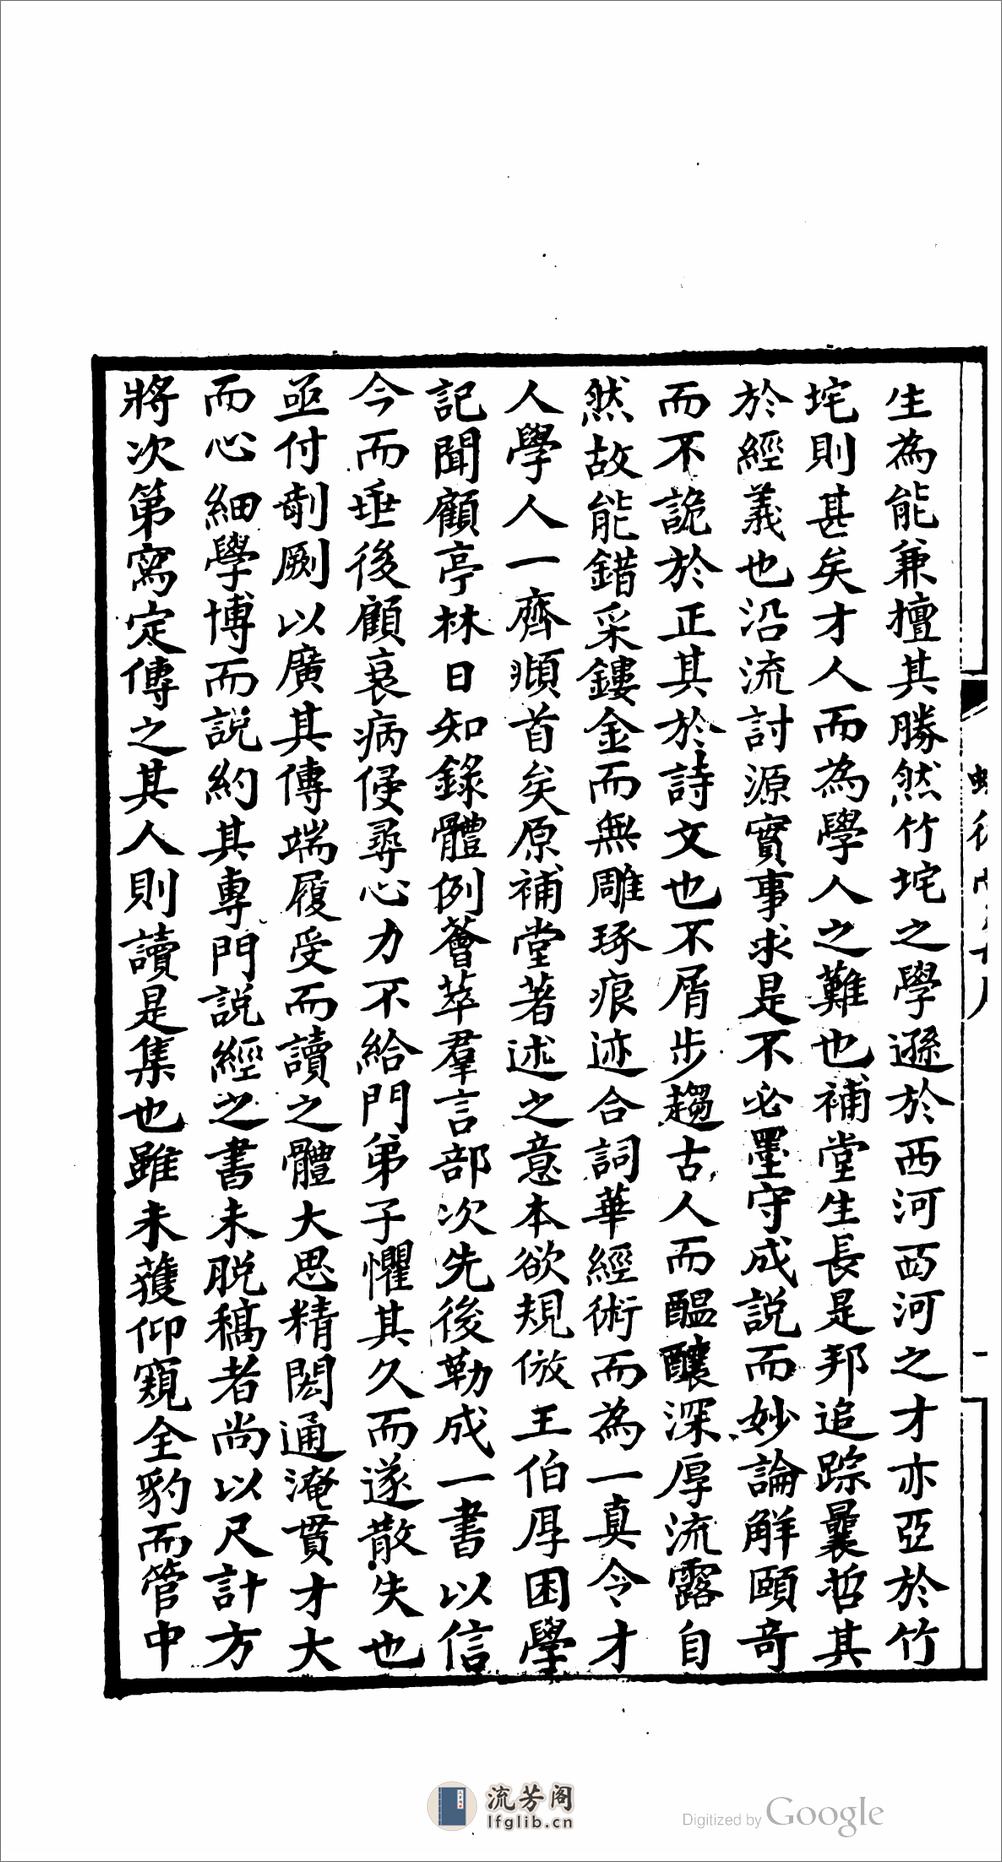 生為能兼擅其勝然竹垞之學遜於西河西河之才亦亞於竹
垞則甚矣才人而為學人之難也補堂生長是邦追踪曩哲其
於經義也沿流討源實事求是不必墨守成說而妙論解頤奇
而不詭於正其於詩文也不屑步趨古人而醞釀深厚流露自
然故能錯采鏤金而無雕琢痕迹合詞華經術而為一真令才
人學人一齊頫首矣原補堂著述之意本欲規倣王伯厚困學
記聞顧亭林日知錄體例薈萃羣言部次先後勒成一書以信
今而垂後顧衰病侵尋心力不給門弟子懼其久而遂散失也
亟付剞劂以廣其傳端履受而讀之體大思精閎通淹貫才大
而心細學博而說約其專門說經之書未脫稿者尚以尺計方
將次第寫定傳之其人則讀是集也雖未獲仰窺全豹而管中
一
流芳阁
lfglib.cn
Digitized by Google